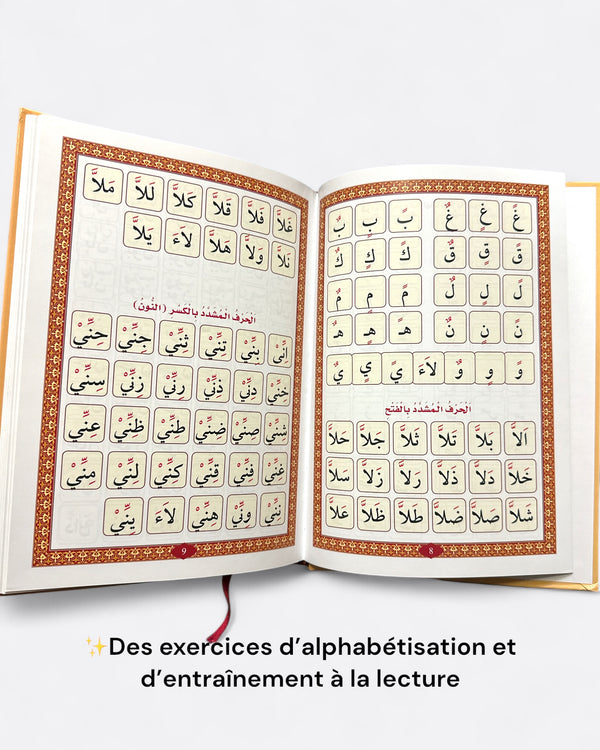 غً غٍ غٌ بً بٍ بٌ
قً قٍ قٌ كً كٍ كٌ
لً لٍ لٌ مً مٍ مٌ
نً نٍ نٌ هـً هـٍ هـٌ
وً وٍ وٌ لاَءَ يً يٍ يٌ
اَلْحَرْفُ الْمُشَدَّدُ بِالْفَتْحِ
اَلاَّ بَلاَّ تَلاَّ ثَلاَّ جَلاَّ حَلاَّ
خَلاَّ دَلاَّ ذَلاَّ رَلاَّ زَلاَّ سَلاَّ
شَلاَّ صَلاَّ ضَلاَّ طَلاَّ ظَلاَّ عَلاَّ
8
غَلاَّ فَلاَّ قَلاَّ كَلاَّ لَلاَّ مَلاَّ
نَلاَّ وَلاَّ هَلاَّ لاَءَ يَلاَّ
اَلْحَرْفُ الْمُشَدَّدُ بِالْكَسْرِ (النُّونُ)
اِنِّي بِنِّيْ تِنِّيْ ثِنِّيْ جِنِّيْ حِنِّيْ
خِنِّيْ دِنِّيْ ذِنِّيْ رِنِّيْ زِنِّيْ سِنِّيْ
شِنِّيْ صِنِّيْ ضِنِّيْ طِنِّيْ ظِنِّيْ عِنِّيْ
غِنِّيْ فِنِّيْ قِنِّيْ كِنِّيْ لِنِّيْ مِنِّيْ
نِنِّيْ وِنِّيْ هِنِّيْ لاَءَ يِنِّيْ
9
✨Des exercices d’alphabétisation et
d’entraînement à la lecture